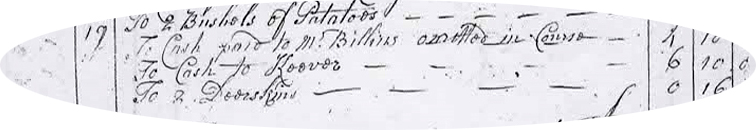 To 2 Bushels of Potatoes
19 To Cash paid to Mr. Billins omitted in Course 4 10
To Cash to Hoover 6 10 0
To 2 Deerskins 0 16